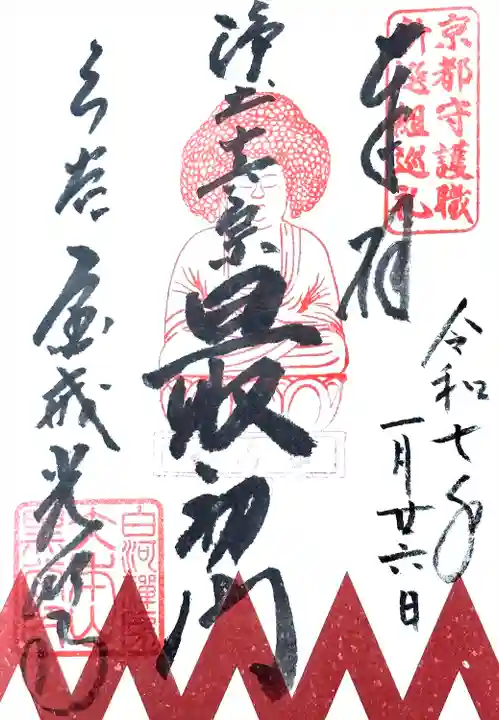 京都守護職
新選組巡礼
奉拝
令和七年
一月廿六日
浄土真宗最初門
くろ谷金戒光明寺
白河禅房
大本山